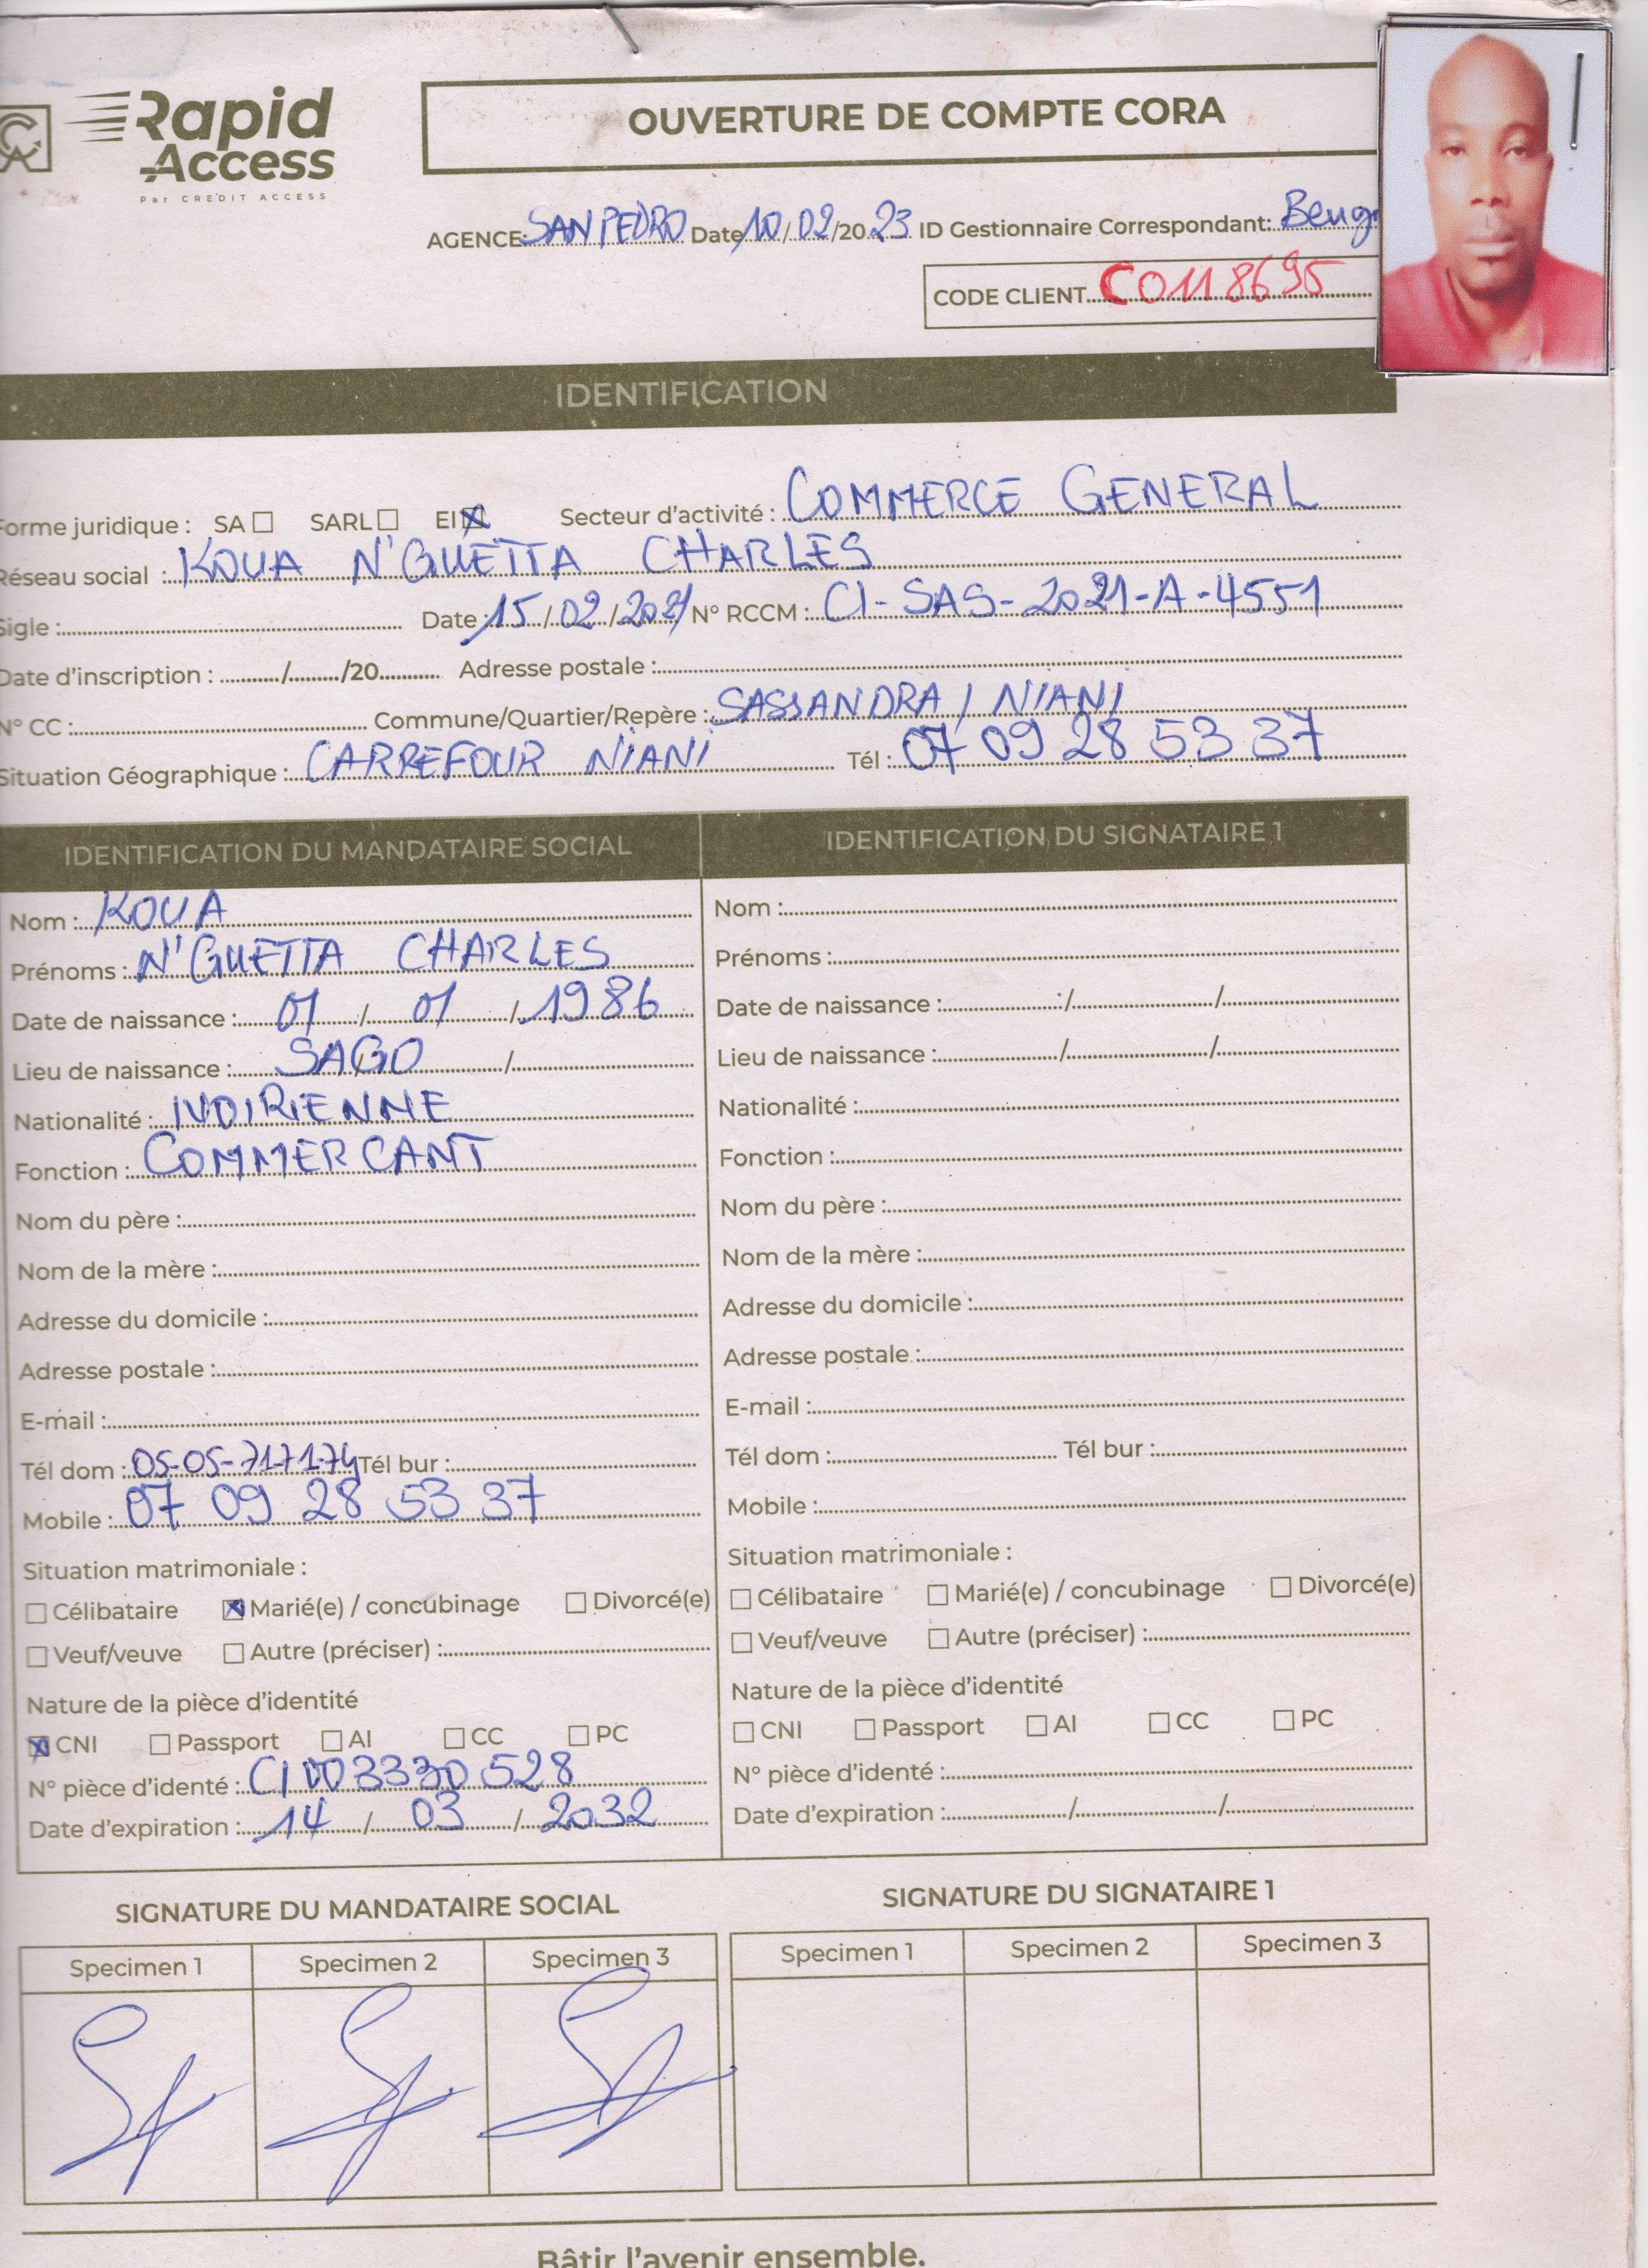 Rapid
Access
Par CREDIT ACCESS
OUVERTURE DE COMPTE CORA
AGENCE: SAN PEDRO Date 10/02/2023 ID Gestionnaire Correspondant:
CODE CLIENT C0118695
IDENTIFICATION
Forme juridique : SA SARL EI Secteur d'activité : COMMERCE GENERAL
Réseau social : KOUA N'GUETTA CHARLES
Sigle : Date : 15/02/2021 N° RCCM : CI-SAS-2021-A-4551
Date d'inscription : / /20 Adresse postale :
N° CC : Commune/Quartier/Repère : SASSANDRA / NIANI
Situation Géographique : CARREFOUR NIANI Tél : 07 09 28 53 37
IDENTIFICATION DU MANDATAIRE SOCIAL
Nom : KOUA
Prénoms : N'GUETTA CHARLES
Date de naissance : 01 / 01 / 1986
Lieu de naissance : SAGO /
Nationalité : IVOIRIENNE
Fonction : COMMERCANT
Nom du père :
Nom de la mère :
Adresse du domicile :
Adresse postale :
E-mail :
Tél dom : 05-05-717174 Tél bur :
Mobile : 07 09 28 53 37
Situation matrimoniale :
Célibataire Marié(e) / concubinage Divorcé(e)
Veuf/veuve Autre (préciser) :
Nature de la pièce d'identité
CNI Passport AI CC PC
N° pièce d'identé : CI003330528
Date d'expiration : 14 / 03 / 2032
IDENTIFICATION DU SIGNATAIRE 1
Nom :
Prénoms :
Date de naissance : / /
Lieu de naissance : / /
Nationalité :
Fonction :
Nom du père :
Nom de la mère :
Adresse du domicile :
Adresse postale :
E-mail :
Tél dom : Tél bur :
Mobile :
Situation matrimoniale :
Célibataire Marié(e) / concubinage Divorcé(e)
Veuf/veuve Autre (préciser) :
Nature de la pièce d'identité
CNI Passport AI CC PC
N° pièce d'identé :
Date d'expiration : / /
SIGNATURE DU MANDATAIRE SOCIAL
Specimen 1 Specimen 2 Specimen 3
SIGNATURE DU SIGNATAIRE 1
Specimen 1 Specimen 2 Specimen 3
Bâtir l'avenir ensemble.